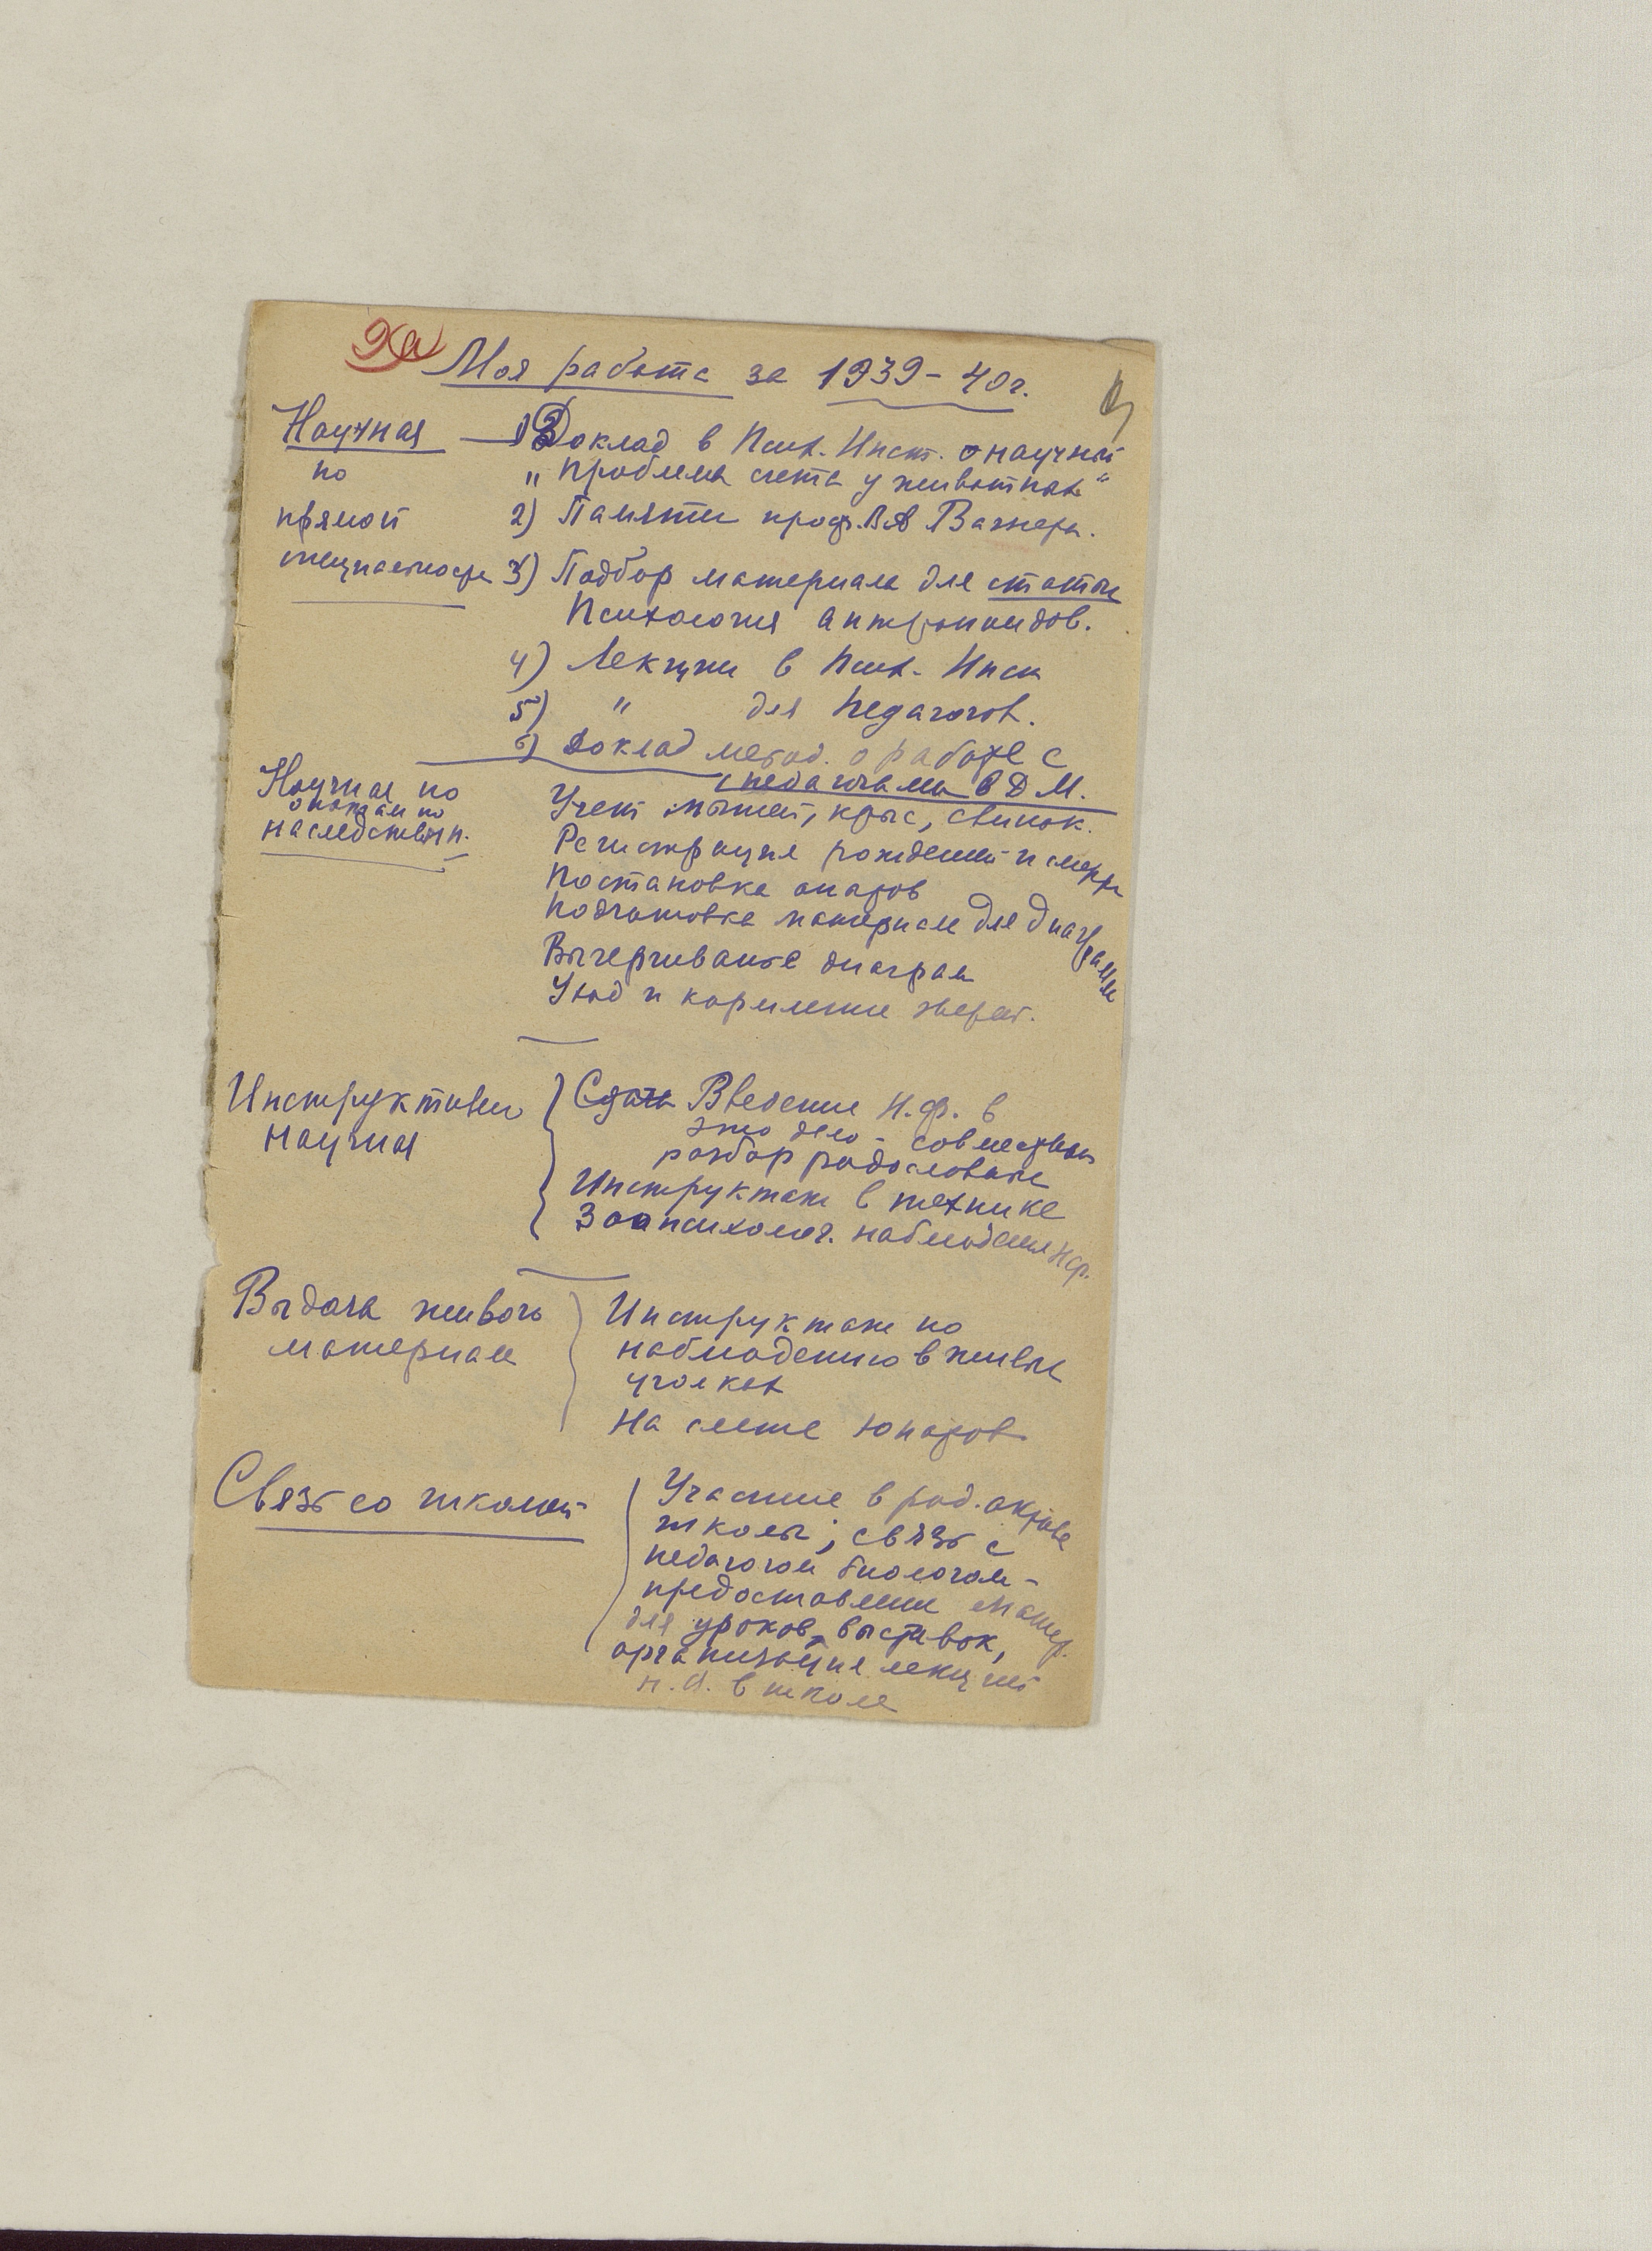 9а
Моя работа за 1939-40г.
Научная
по
прямой
специальности
1) Доклад в Псих. Инст. научный
"Проблема счета у животных"
2) Памяти проф. В.А. Вагнера.
3) Подбор материала для статьи
Психология антропоидов.
4) Лекции в Псих. Инст
5) " для педагогов.
6) Доклад метод. о работе с
педагогами в Д М.
Научная по
опытам по
наследственн.
Учет мышей, крыс, свинок.
Регистрация рождений и смерти
Постановка опытов
Подготовка материала для диаграмм
Вычерчивание диаграм
Уход и кормление зверей.
Инструктивн
научная
Сдача Введение Н.Ф. в
это дело - совместный
разбор родословных
Инструктаж в технике
Зоопсихолог. наблюдения Н.Ф.
Выдача живого
материала
Инструктаж по
наблюдению в живых
уголках
На слете юнатов
Связь со школой
Участие в род. активе
школы; связь с
педагогом биологом -
предоставление матер.
для уроков, выставок,
организация лекций
в школе